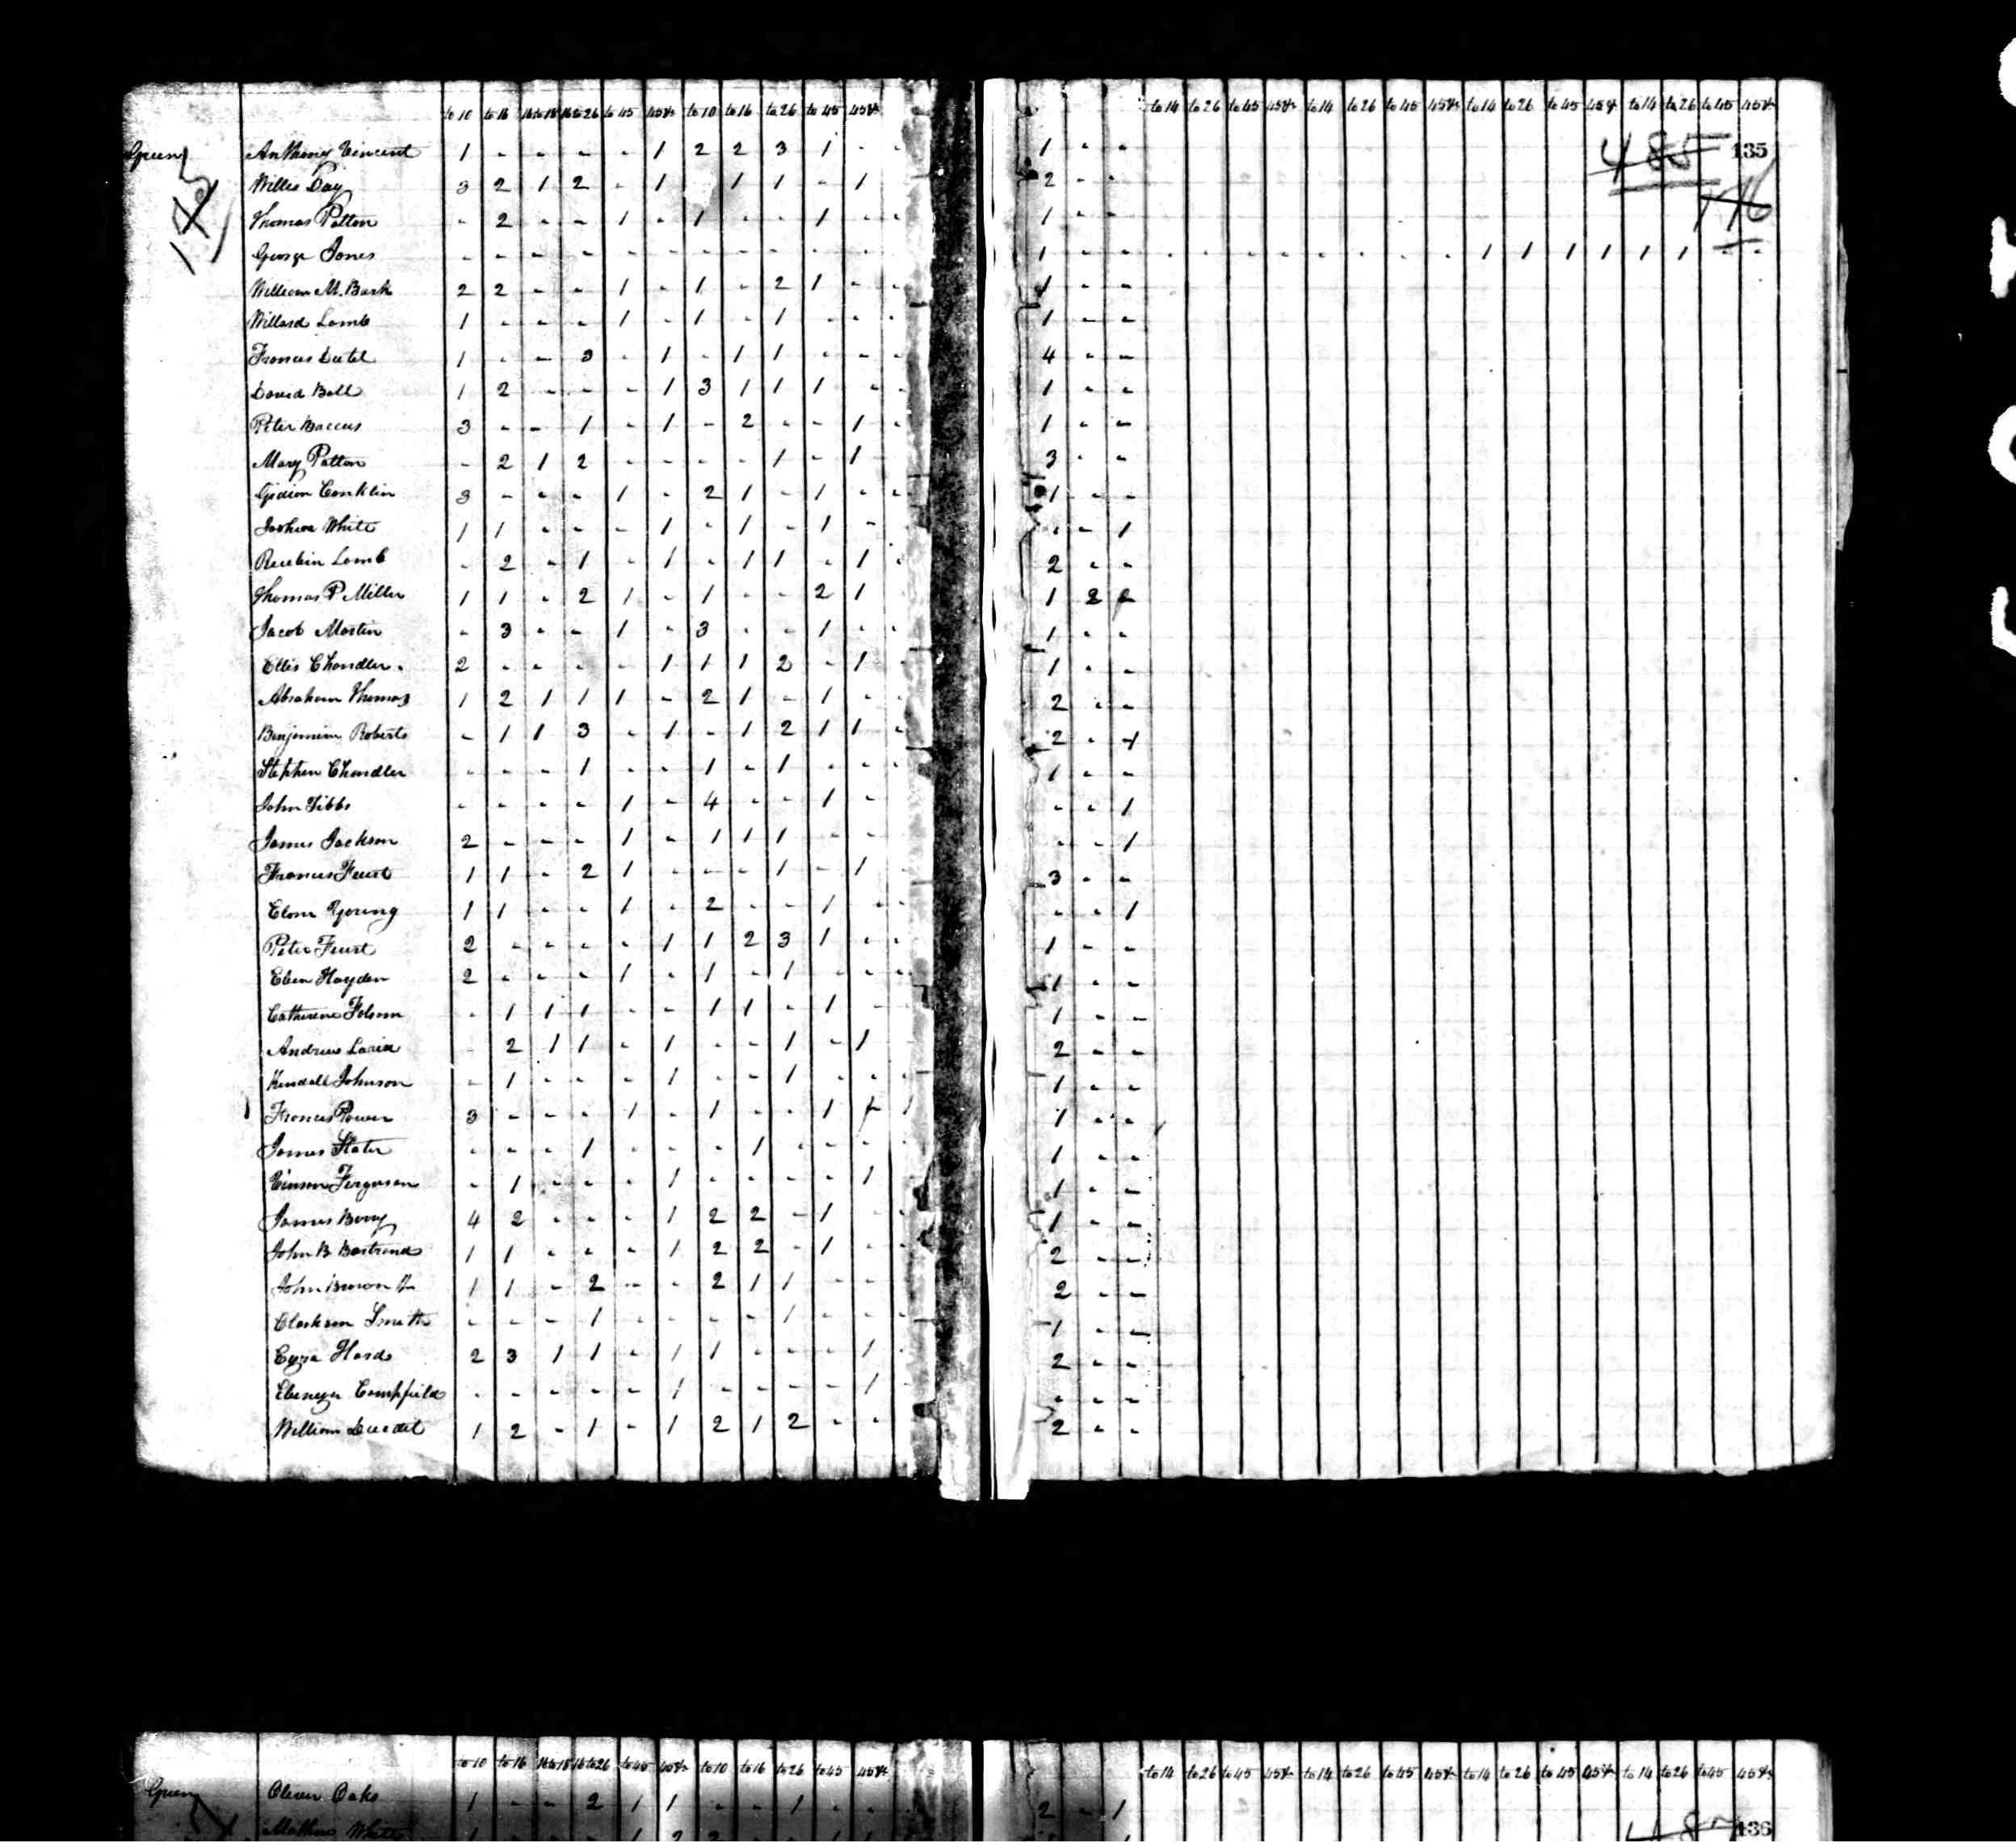 to 10 to 16 16 to 18 16 to 26 to 45 45 & to 10 to 16 to 26 to 45 45 & to 14 to 26 to 45 45 & to 14 to 26 to 45 45 & to 14 to 26 to 45 45 & to 14 to 26 to 45 45 &
Green Anthony Vincent 1 - - - - 1 2 2 3 1 - - 1 - - 485 135
Willis Day 3 2 1 2 - 1 1 1 - 1 2 - -
Thomas Patton - 2 - - 1 - 1 - - 1 - - 1 - - 176
George Jones - - - - - - - - - - - 1 - - - - - - - - - - 1 1 1 1 1 1 - -
William M. Bark 2 2 - - 1 - 1 - 2 1 - - 1 - -
Willard Lamb 1 - - - 1 - 1 - 1 - - - 1 - -
Francis Dutel 1 - - 3 - 1 - 1 1 - - - 4 - -
David Ball 1 2 - - - 1 3 1 1 1 - - 1 - -
Peter Baccus 3 - - 1 - 1 - 2 - - 1 - 1 - -
Mary Patton - 2 1 2 - - - - 1 - 1 3 - -
Gideon Conklin 3 - - - 1 - 2 1 - 1 - - 1 - -
Joshua White 1 1 - - - 1 - 1 - 1 - - - 1
Reubin Lamb - 2 - 1 - 1 - 1 1 - 1 - 2 - -
Thomas P Miller 1 1 - 2 1 - 1 - - 2 1 1 2 2
Jacob Martin - 3 - - 1 - 3 - - 1 - - 1 - -
Ellis Chandler 2 - - - - 1 1 1 2 - 1 - 1 - -
Abraham Thomas 1 2 1 1 1 - 2 1 - 1 - - 2 - -
Benjamin Roberts - 1 1 3 - 1 - 1 2 1 1 - 2 - 1
Stephen Chandler - - - 1 - - 1 - 1 - - - 1 - -
John Tibbs - - - - 1 - 4 - - 1 - - - 1
James Jackson 2 - - - 1 - 1 1 1 - - - - 1
Francis Feurt 1 1 - 2 1 - - - 1 - 1 3 - -
Elam Young 1 1 - - 1 - 2 - - 1 - - - - 1
Peter Feurt 2 - - - - 1 1 2 3 1 - - 1 - -
Eben Hayden 2 - - - 1 - 1 - 1 - - - 1 - -
Catherine Folsom - 1 1 1 - - 1 1 - 1 - 1 - -
Andrew Lacin - 2 1 1 - 1 - - 1 - 1 2 - -
Kendall Johnson - 1 - - - 1 - - 1 - - - 1 - -
Francis Power 3 - - - 1 - 1 - - 1 1 - -
James Slater - - - 1 - - - 1 - - - 1 - -
Vinson Ferguson - 1 - - - 1 - - - - 1 1 - -
James Berry 4 2 - - - 1 2 2 - 1 - 1 - -
John B Bertrand 1 1 - - - 1 2 2 - 1 - 2 - -
John Brown 1 1 - 2 - - 2 1 1 - - 2 - -
Clarkson Smith - - - 1 - - - - 1 - - - 1 - -
Ezra Hard 2 3 1 1 - 1 1 - - - 1 2 - -
Ebenezer Campfield - - - - - 1 - - - - 1 - - -
William Duedel 1 2 - 1 - 1 2 1 2 - - 2 - -
to 10 to 16 16 to 18 16 to 26 to 45 45 & to 10 to 16 to 26 to 45 45 & to 14 to 26 to 45 45 & to 14 to 26 to 45 45 & to 14 to 26 to 45 45 & to 14 to 26 to 45 45 &
Green Oliver Oaks 1 - - 2 1 1 - - 1 - - 2 - 1
White 136